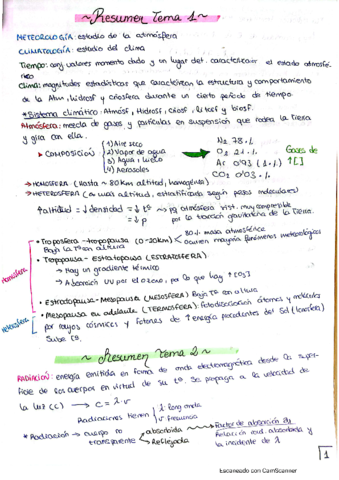 ~Resumen Tema 1~
METEOROLOGÍA: estudio de la atmósfera
CLIMATOLOGÍA: estudio del clima
Tiempo: conj valores momento dado y un lugar det. caracterizan el estado atmosférico
Clima: magnitudes estadísticas que caracterizan la estructura y comportamiento
de la Atm, hidrosf y criosfera durante un cierto período de tiempo.
*Sistema climático: Atmósf, Hidrosf, Criosf, Litosf y biosf.
Atmósfera: mezcla de gases y partículas en suspensión que rodea la tierra
y gira con ella.
→ COMPOSICIÓN
1) Aire seco
2) Vapor de agua
3) Agua líquida
4) Aerosoles
N2 78.%
O2 21.%
Ar 0'93 (1.%)
CO2 0'03.%
Gases de
↑[]
→HOMOSFERA (hasta ~80km altitud, homogénea)
→HETEROSFERA (a cual altitud, estratificado según pesos moleculares)
↑altitud = ↓densidad = ↓tº → pq atmósfera muy compresible
= ↓p por la atracción gravitatoria de la Tierra.
80.% masa atmosférica
• Troposfera - tropopausa (0-20km) ocurren mayoría fenómenos meteorológicos
Baja la Tº con altura
• Tropopausa - Estratopausa (ESTRATOSFERA)
→ Hay un gradiente térmico
→ Absorción UV por el ozono, por lo que hay ↑[O3]
Homosfera
• Estratopausa - Mesopausa (MESOSFERA) Baja Tº con altura
• Mesopausa en adelante (TERMOSFERA) Fotodisociación átomos y moléculas
Heterosfera
por rayos cósmicos y fotones de ↑energía procedentes del Sol (ionosfera)
Sube tº.
~Resumen Tema 2~
RADIACIÓN: energía emitida en forma de onda electromagnética desde la superficie
de los cuerpos en virtud de su tº. Se propaga a la velocidad de
la luz (c) → c = λ·ν
Radiaciones tienen
λ long onda
ν frecuencia
*Radiación → cuerpo no transparente
absorbida
Reflejada
Factor de absorción
Relación rad. absorbida y
la incidente de λ
1
Escaneado con CamScanner